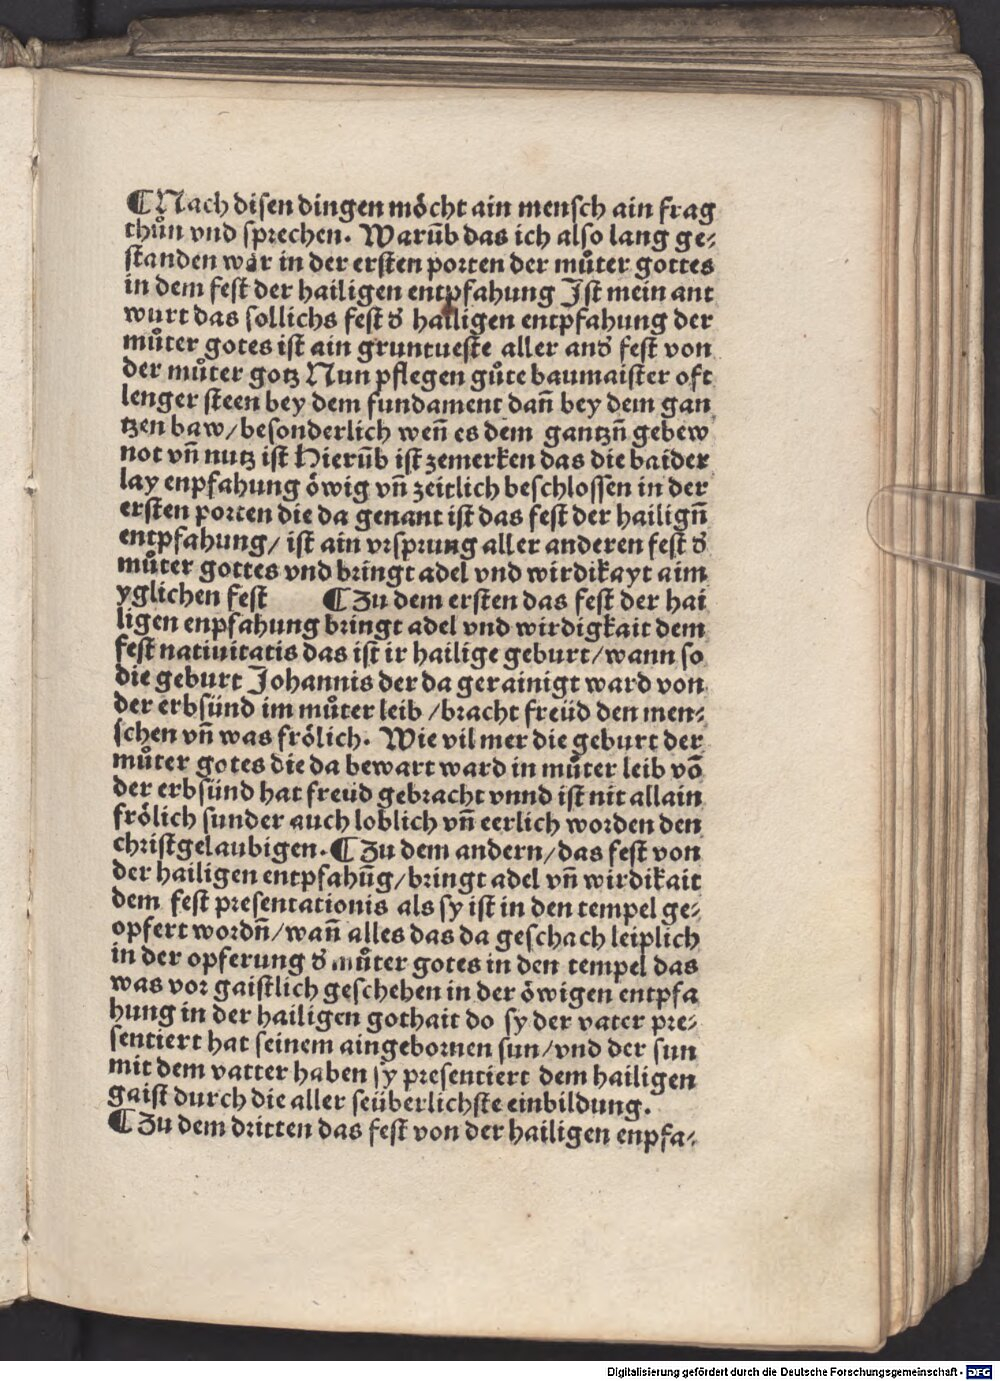 ¶ Nach disen dingen möcht ain mensch ain frag
thůn vnd sprechen. Warūb das ich also lang ge⸗
standen wår in der ersten porten der můter gottes
in dem fest der hailigen entpfahung Ist mein ant
wurt das sollichs fest ď hailigen entpfahung der
můter gotes ist ain gruntueste aller anď fest von
der můter gotz Nun pflegen gůte baumaister oft
lenger steen bey dem fundament dañ bey dem gan
tzen baw/besonderlich weñ es dem gantzñ gebew
not vñ nutz ist Hierūb ist zemerken das die baider
lay enpfahung öwig vñ zeitlich beschlossen in der
ersten porten die da genant ist das fest der hailigñ
entpfahung/ ist ain vrsprung aller anderen fest ď
můter gottes vnd bringt adel vnd wirdikayt aim
yglichen fest ¶ Zu dem ersten das fest der hai
ligen enpfahung bringt adel vnd wirdigkait dem
fest natiuitatis das ist ir hailige geburt/wann so
die geburt Johannis der da gerainigt ward von
der erbsünd im můter leib /bracht freüd den men⸗
schen vñ was frölich. Wie vil mer die geburt der
můter gotes die da bewart ward in můter leib võ
der erbsünd hat freüd gebracht vnnd ist nit allain
frölich sunder auch loblich vñ eerlich worden den
christgelaubigen. ¶ Zu dem andern/das fest von
der hailigen entpfahūg/bringt adel vñ wirdikait
dem fest presentationis als sy ist in den tempel ge⸗
opfert wordñ/wañ alles das da geschach leiplich
in der opferung ď můter gotes in den tempel das
was vor gaistlich geschehen in der öwigen entpfa
hung in der hailigen gothait do sy der vater pre⸗
sentiert hat seinem aingebornen sun/vnd der sun
mit dem vatter haben sy presentiert dem hailigen
gaist durch die aller seüberlichste einbildung.
¶ Zu dem dritten das fest von der hailigen enpfa⸗
Digitalisierung gefördert durch die Deutsche Forschungsgemeinschaft - DFG